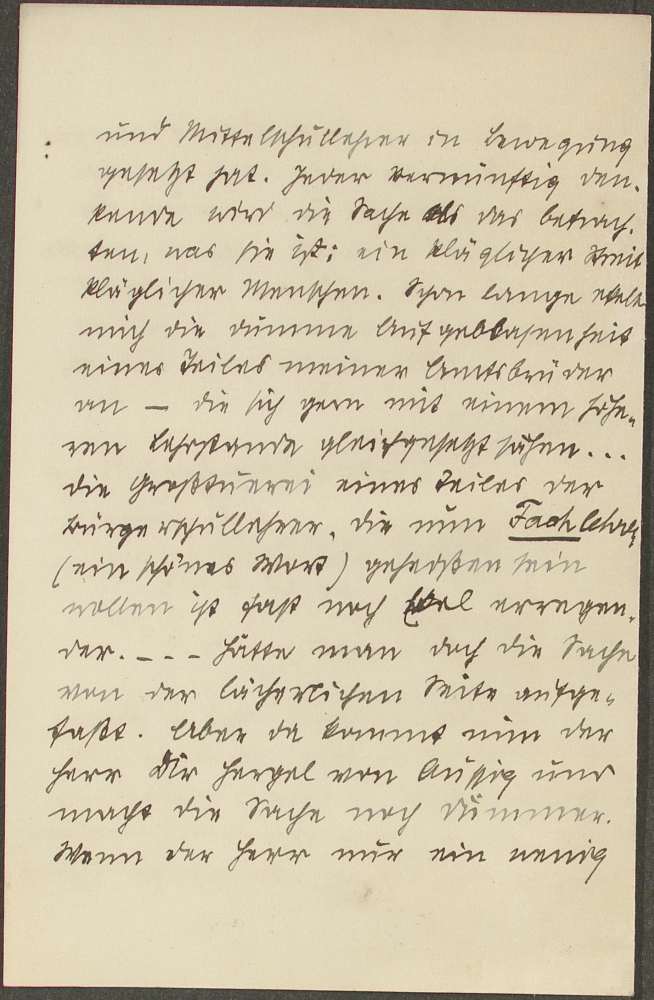 und Mittelschullehrer in Bewegung
gesetzt hat. Jeder vernünftig den-
kende wird die Sache als das betrach-
ten, was sie ist: ein kläglicher Streit
kläglicher Menschen. Schon lange ekelt
mich die dumme Aufgeblasenheit
eines Teiles meiner Amtsbrüder
an — die sich gern mit einem höhe-
ren Lehrstande gleichgesetzt sähen...
die Großtuerei eines Teiles der
Bürgerschullehrer, die nun Fachlehrer
(ein schönes Wort) geheißen sein
wollen ist fast noch Ekel erregen-
der. _ _ _ Hätte man doch die Sache
von der lächerlichen Seite aufge-
faßt. Aber da kommt nun der
Herr Dir Hergel von Aussig und
macht die Sache noch dümmer.
Wenn der Herr nur ein wenig